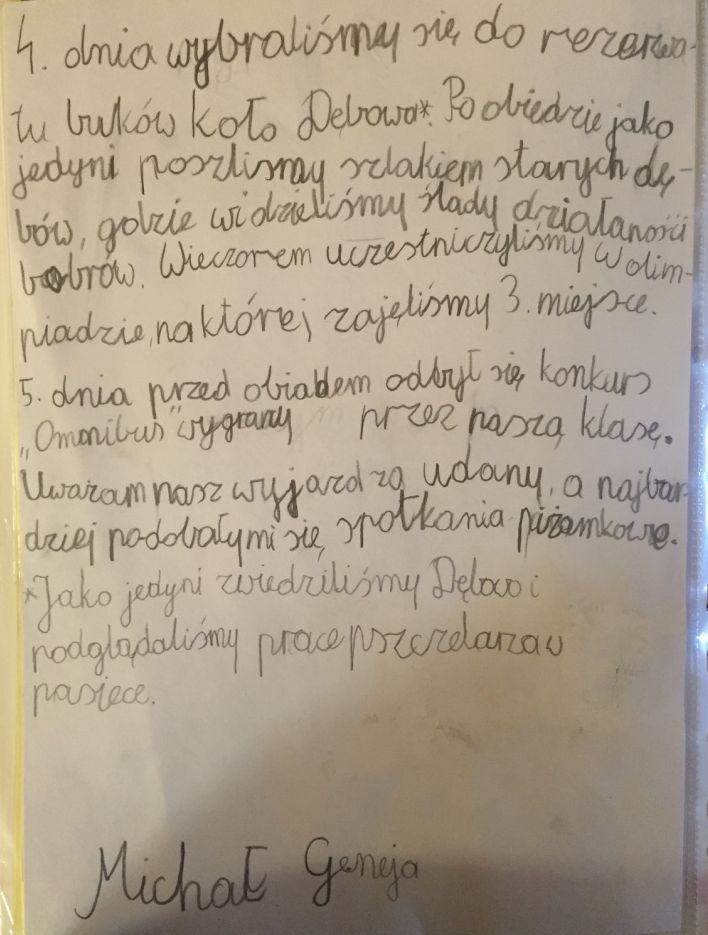 4. dnia wybraliśmy się do rezerwa-
tu buków koło Dębowa*. Po obiedzie jako
jedyni poszliśmy szlakiem starych dę-
bów, gdzie widzieliśmy ślady działaności
bobrów. Wieczorem uczestniczyliśmy w olim-
piadzie, na której zajęliśmy 3. miejsce.
5. dnia przed obiadem odbył się konkurs
„Omonibus” wygrany przez naszą klasę.
Uważam nasz wyjazd za udany, a najbar-
dziej podobały mi się spotkania piżamkowe.
*Jako jedyni zwiedziliśmy Dębowo i
podglądaliśmy prace pszczelarza w
pasiece.
Michał Geneja